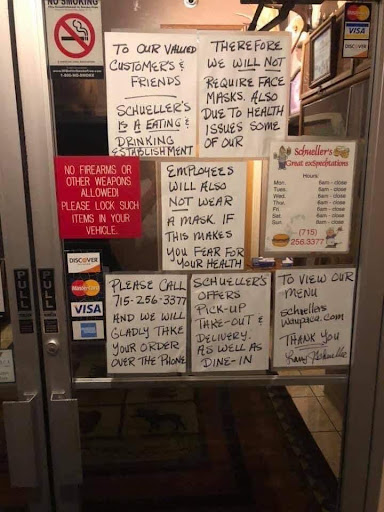 NO SMOKING
TO OUR VALUED
CUSTOMER'S &
FRIENDS
SCHUELLER'S
IS A EATING &
DRINKING
ESTABLISHMENT
THEREFORE
WE WILL NOT
REQUIRE FACE
MASKS. ALSO
DUE TO HEALTH
ISSUES SOME
OF OUR
EMPLOYEES
WILL ALSO
NOT WEAR
A MASK. IF
THIS MAKES
YOU FEAR FOR
YOUR HEALTH
PLEASE CALL
715-256-3377
AND WE WILL
GLADLY TAKE
YOUR ORDER
OVER THE PHONE
SCHUELLER'S
OFFERS
PICK-UP
TAKE-OUT &
DELIVERY.
AS WELL AS
DINE-IN
TO VIEW OUR
MENU
schuellers
waupaca.com
THANK YOU
NO FIREARMS OR
OTHER WEAPONS
ALLOWED!
PLEASE LOCK SUCH
ITEMS IN YOUR
VEHICLE.
Schueller's
Great expectations
Hours:
Mon. 6am - close
Tues. 6am - close
Wed. 6am - close
Thur. 6am - close
Fri. 6am - close
Sat. 6am - close
Sun. 6am - close
(715)
256.3377
MasterCard
VISA
DISCOVER
DISCOVER
MasterCard
VISA
PULL
PULL